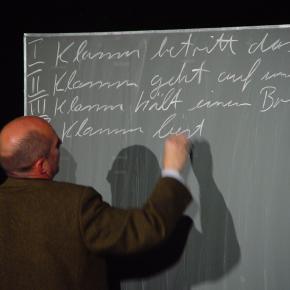 I Klamm betritt das
II Klamm geht auf un
III Klamm hält einen Br
Klamm liest